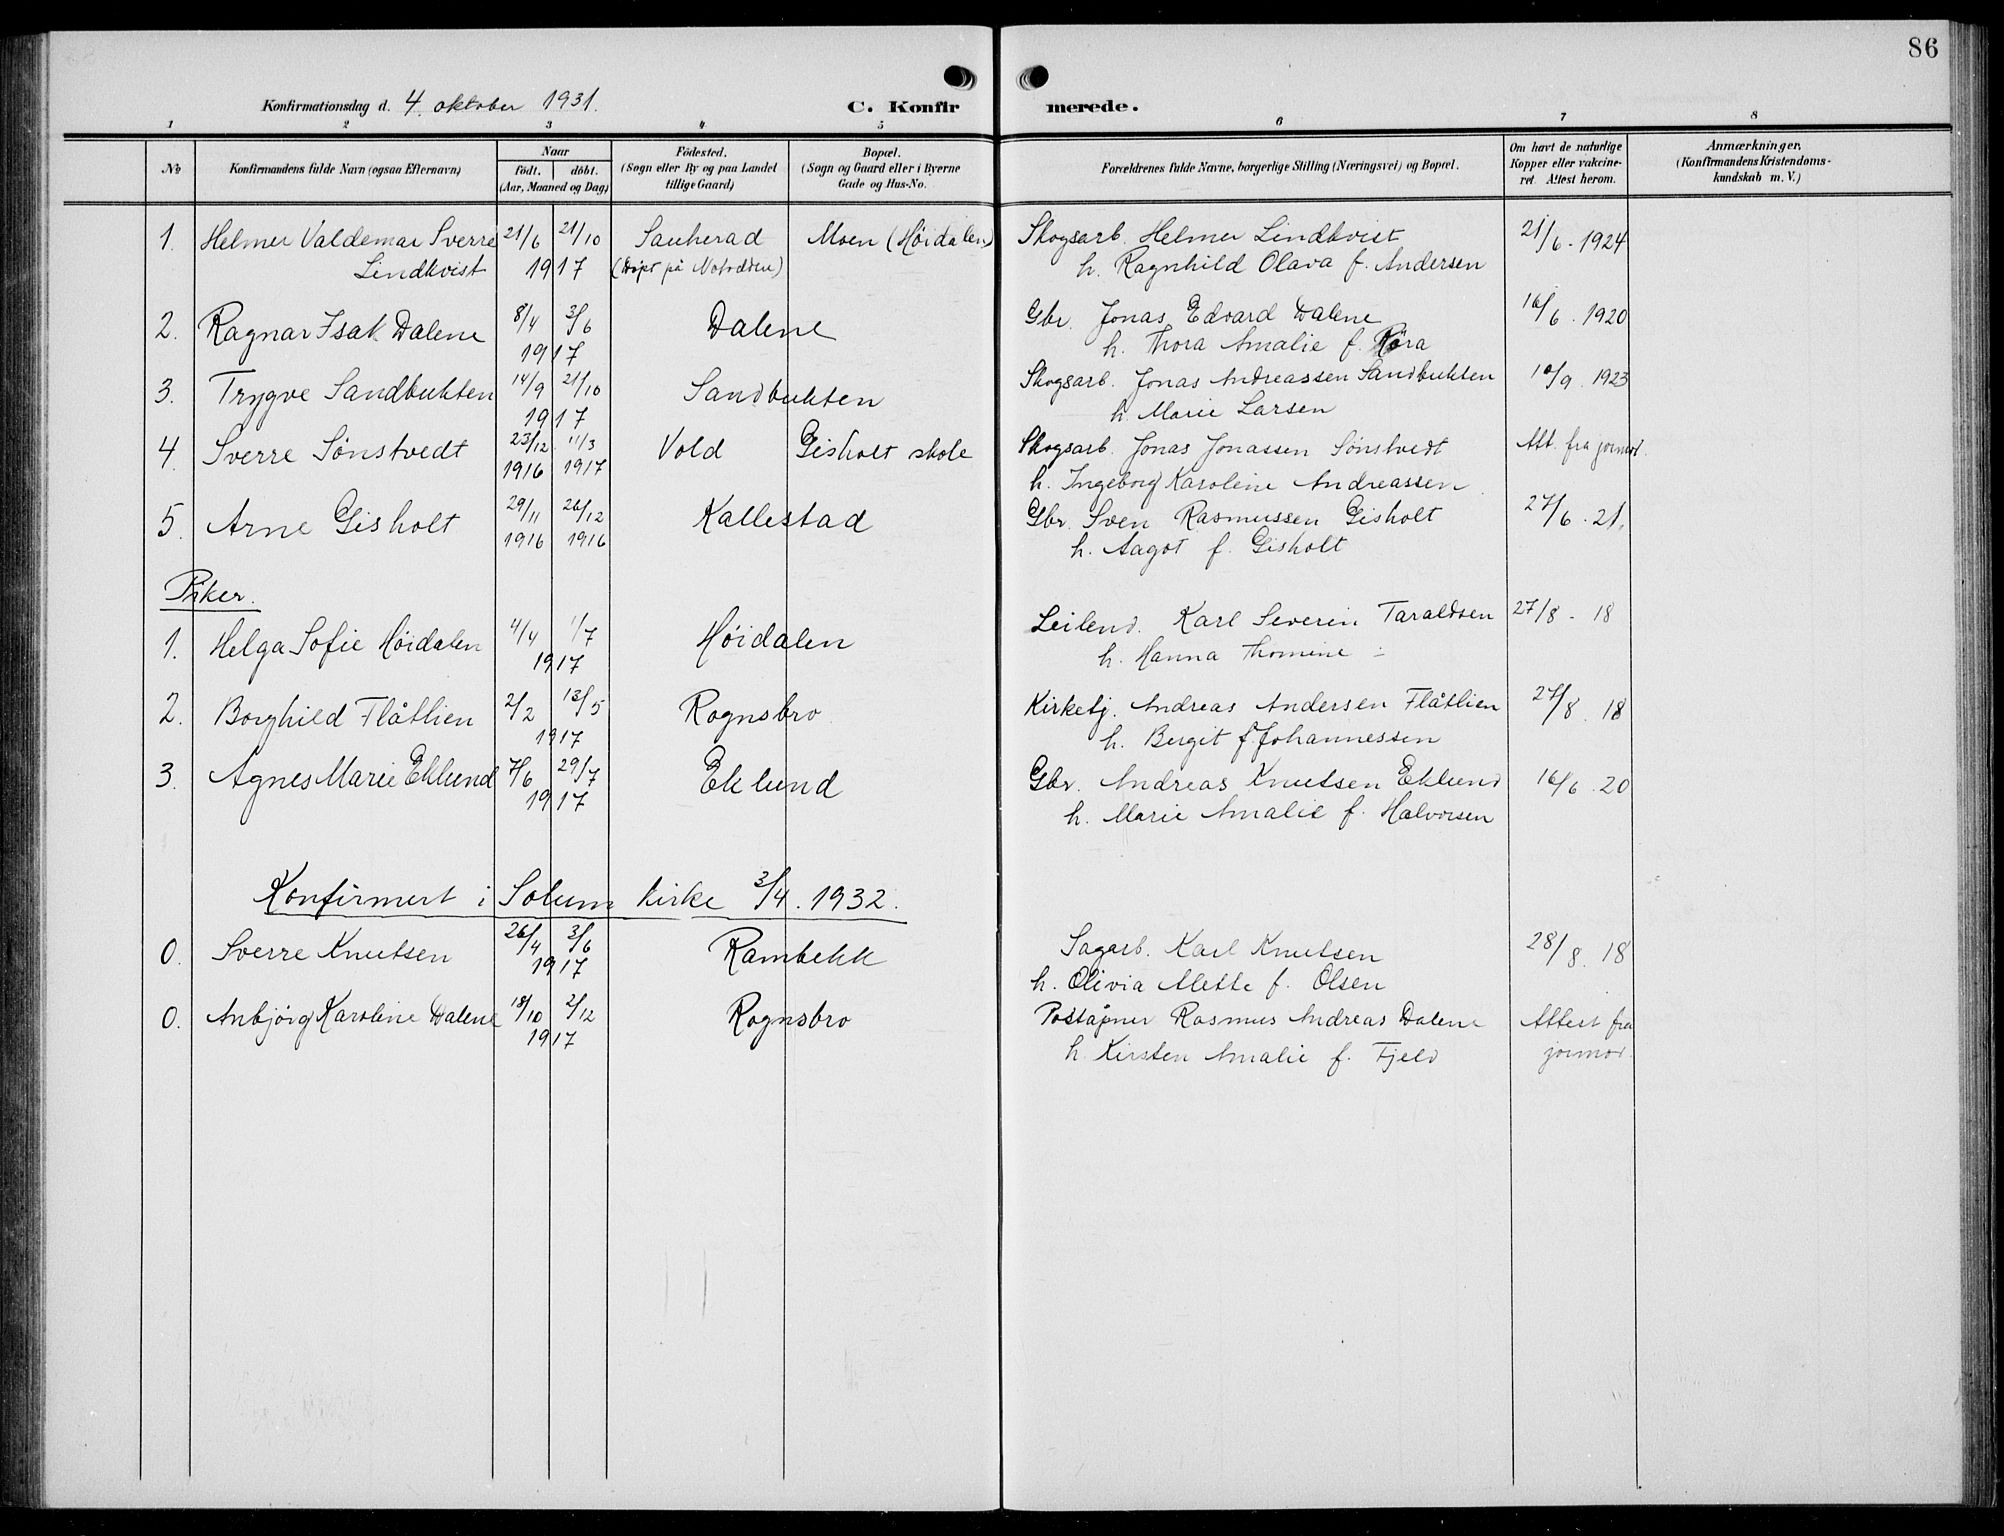 86
Konfirmationsdag d. 4. oktober 1931. C. Konfir merede.
1 2 3 4 5 6 7 8
No Konfirmandens fulde Navn (ogsaa Efternavn) Naar født. døbt. (Aar, Maaned og Dag) Födested. (Sogn eller By og paa Landet tillige Gaard) Bopæl. (Sogn og Gaard eller i Byerne Gade og Hus-No. Forældrenes fulde Navne, borgerlige Stilling (Næringsvei) og Bopæl. Om havt de naturlige Kopper eller vakcineret. Attest herom. Anmærkninger. (Konfirmandens Kristendomskundskab m. V.)
1. Helmer Valdemar Sverre 21/6 21/10 Sauherad Moen (Høidalen) Skogsarb. Helmer Lindkvist 21/6 - 1924
Lindkvist 1917 (Døpt på Notodden) h. Ragnhild Olava f. Andersen
2. Ragnar Isak Dalene 8/4 3/6 Dalene Gbr. Jonas Edvard Dalene 16/6 . 1920
1917 h. Thora Amalie f. Røra
3. Trygve Sandbukten 14/9 21/10 Sandbukten Skogsarb. Jonas Andreassen Sandbukten 10/9 . 1923
1917 h. Marie Larsen
4. Sverre Sønstvedt 23/12 11/3 Vold Gisholt skole Skogsarb. Jonas Jonassen Sønstvedt Att. fra jormod.
1916 1917 h. Ingeborg Karoline Andreassen
5. Arne Gisholt 29/11 26/12 Kallestad Gbr. Sven Rasmussen Gisholt 27/6 . 21.
1916 1916 h. Aagot f. Gisholt
Piker.
1. Helga Sofie Høidalen 4/4 1/7 Høidalen Leilend. Karl Severin Taraldsen 27/8 - 18
1917 h. Hanna Thomine
2. Borghild Flåtlien 2/2 13/5 Rognsbro Kirketj. Andreas Andersen Flåtlien 27/8 . 18
1917 h. Bergit f. Johannessen
3. Agnes Marie Eklund 7/6 29/7 Eklund Gbr. Andreas Knutsen Eklund 16/6 . 20
1917 h. Marie Amalie f. Halvorsen
Konfirmert i Solum kirke 3/4 . 1932.
0. Sverre Knutsen 26/4 3/6 Rambekk Sagarb. Karl Knutsen 28/8 . 18
1917 h. Olivia Alette f. Olsen
0. Anbjørg Karoline Dalene 18/10 2/12 Rognsbro Poståpner Rasmus Andreas Dalene Attest fra
1917 h. Kirsten Amalie f. Fjeld jormod.